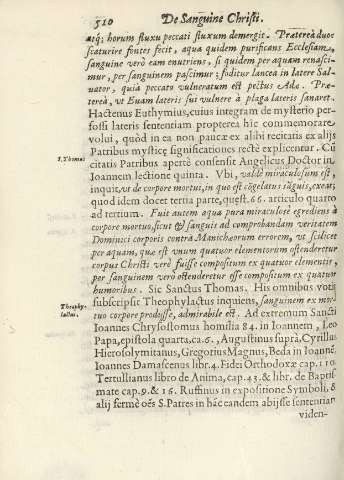 510 De Sanguine Christi.
atq; horum fluxu peccati fluxum demergit. Præterea duos
scaturire fontes fecit, aqua quidem purificans Ecclesiam,
sanguine verò eam enutriens, si quidem per aquam renasci-
mur, per sanguinem pascimur; foditur lancea in latere Sal-
uator, quia peccato vulneratum est pectus Adæ. Præ-
terea, vt Euam lateris sui vulnere à plaga lateris sanaret.
Hactenus Euthymius, cuius integram de mysterio per-
fossi lateris sententiam propterea hic commemorare
volui, quòd in ea non paucæ ex alibi recitatis ex alijs
Patribus mysticę significationes rectè explicentur. Cū
S. Thomas
citatis Patribus apertè consensit Angelicus Doctor in
Ioannem lectione quinta. Vbi, valdè miraculosum est,
inquit, vt de corpore mortuo, in quo est cōgelatus sāguis, exeat;
quod idem docet tertia parte, quęst. 66. articulo quarto
ad tertium. Fuit autem aqua pura miraculosè egrediens à
corpore mortuo, sicut & sanguis ad comprobandam veritatem
Dominici corporis contra Manichæorum errorem, vt scilicet
per aquam, quæ est vnum quatuor elementorum ostenderetur
corpus Christi verè fuisse compositum ex quatuor elementis,
per sanguinem verò ostenderetur esse compositum ex quatuor
humoribus. Sic Sanctus Thomas. His omnibus votis
Theophy-
lactus.
subscripsit Theophylactus inquiens, sanguinem ex mor-
tuo corpore prodijsse, admirabile est. Ad extremum Sancti
Ioannes Chrysostomus homilia 84. in Ioannem, Leo
Papa, epistola quarta, ca. 6., Augustinus suprà, Cyrillus
Hierosolymitanus, Gregorius Magnus, Beda in Ioannē.
Ioannes Damascenus libr. 4. Fidei Orthodoxæ cap. 110
Tertullianus libro de Anima, cap. 43. & libr. de Baptis-
mate cap. 9. & 16. Ruffinus in expositione Symboli, &
alij fermè oēs S. Patres in hāc eandem abijsse sententiam
viden-